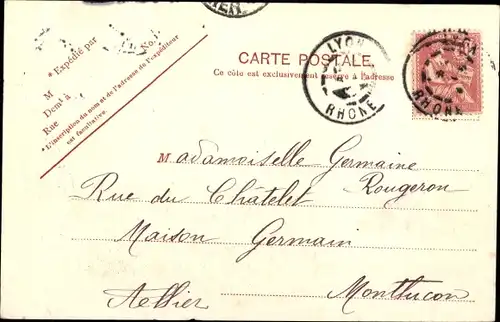 * Expédié par
M
Demt à
Rue No
*L'inscription du nom et de l'adresse de l'expéditeur
est facultative.
CARTE POSTALE.
Ce côté est exclusivement réservé à l'adresse
LYON
RHONE
RHONE
Madamoiselle Germaine
Rougeron
Rue du Châtelet
Maison Germain
Allier Montlucon